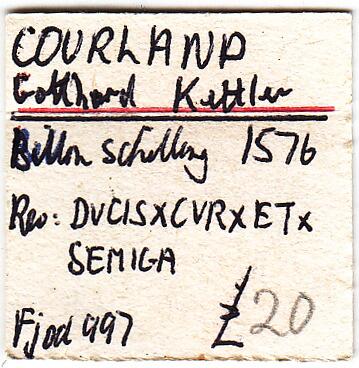 COURLAND
Gotthard Kettler
Billon schilling 1576
Rev: DVCISXCVRXETX
SEMIGA
Fjod 997
£20